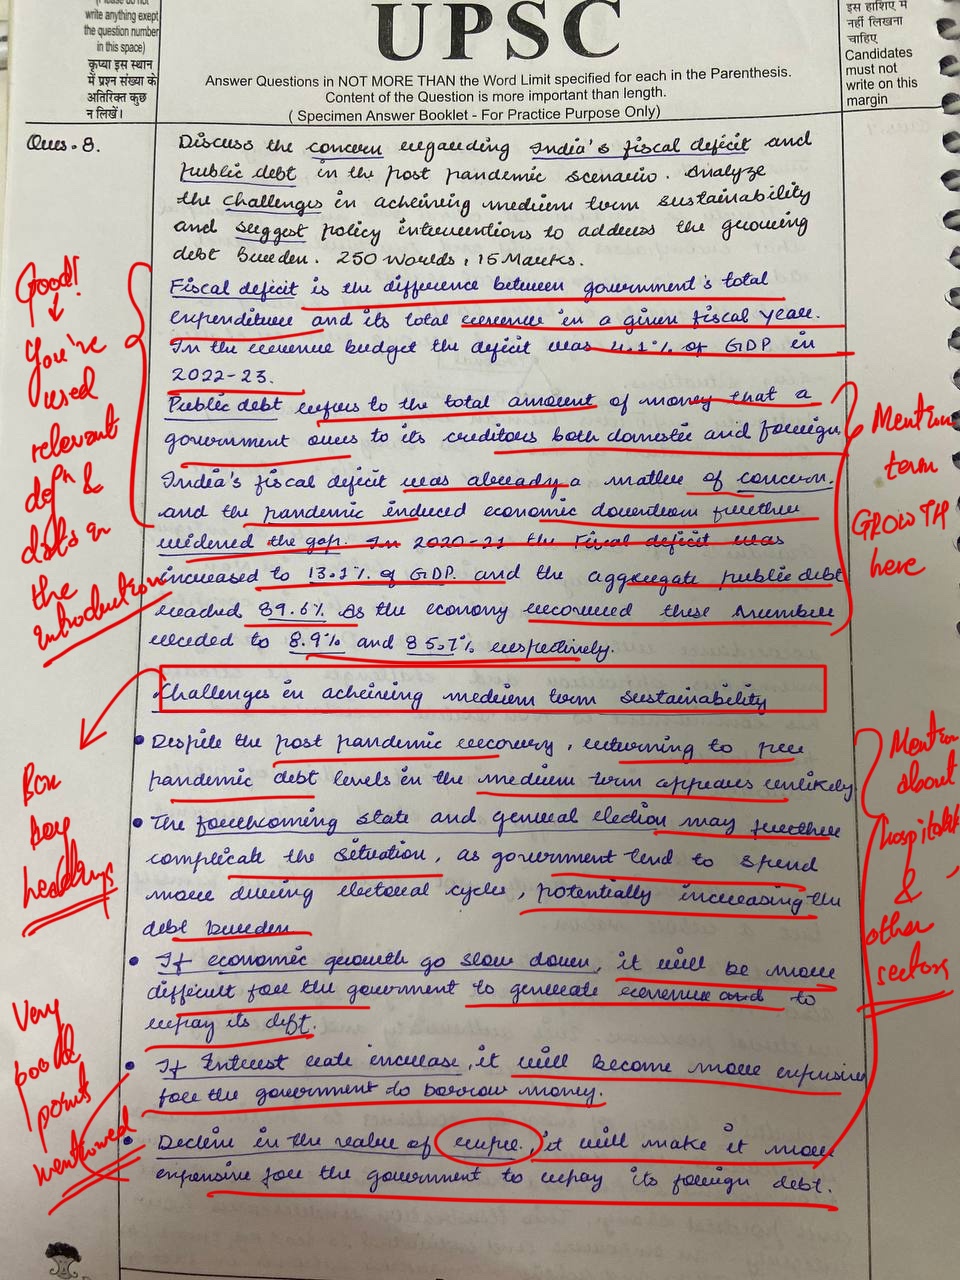 (Please do not
write anything exept
the question number
in this space)
कृप्या इस स्थान
में प्रश्न संख्या के
अतिरिक्त कुछ
न लिखें।
UPSC
Answer Questions in NOT MORE THAN the Word Limit specified for each in the Parenthesis.
Content of the Question is more important than length.
( Specimen Answer Booklet - For Practice Purpose Only)
इस हाशिए में
नहीं लिखना
चाहिए
Candidates
must not
write on this
margin
Ques. 8.
Discuss the concern regarding India's fiscal deficit and
public debt in the post pandemic scenario. Analyze
the challenges in acheining medium term sustainability
and suggest policy interventions to address the growing
debt burden. 250 Words, 15 Marks.
Fiscal deficit is the difference between government's total
expenditure and its total revenue in a given fiscal year.
In the revenue budget the deficit was 4.1% of GDP in
2022-23.
Public debt refers to the total amount of money that a
government owes to its creditors both domestic and foreign.
India's fiscal deficit was already a matter of concern.
and the pandemic induced economic downturn further
widened the gap. In 2020-21 the Fiscal deficit was
increased to 13.1% of GDP. and the aggregate public debt
reached 89.6% As the economy recovered these number
receded to 8.9% and 85.7% respectively.
Challenges in acheining medium term sustainability
• Despite the post pandemic recovery, returning to pre
pandemic debt levels in the medium term appears unlikely
• The forthcoming state and general election may further
complicate the situation, as government tend to spend
more during electoral cycles, potentially increasing the
debt burden
• If economic growth go slow down, it will be more
difficult for the government to generate revenue and to
repay its deft.
• If Interest rate increase, it will become more expensive
for the government to borrow money.
• Decline in the value of rupee, it will make it more
expensive for the government to repay its foreign debt.
Good!
You're
used
relevant
defⁿ &
data in
the
introduction
Mention
term
GROWTH
here
Box
key
headings
Mention
about
hospitals
&
other
sectors
Very
good
points
mentioned